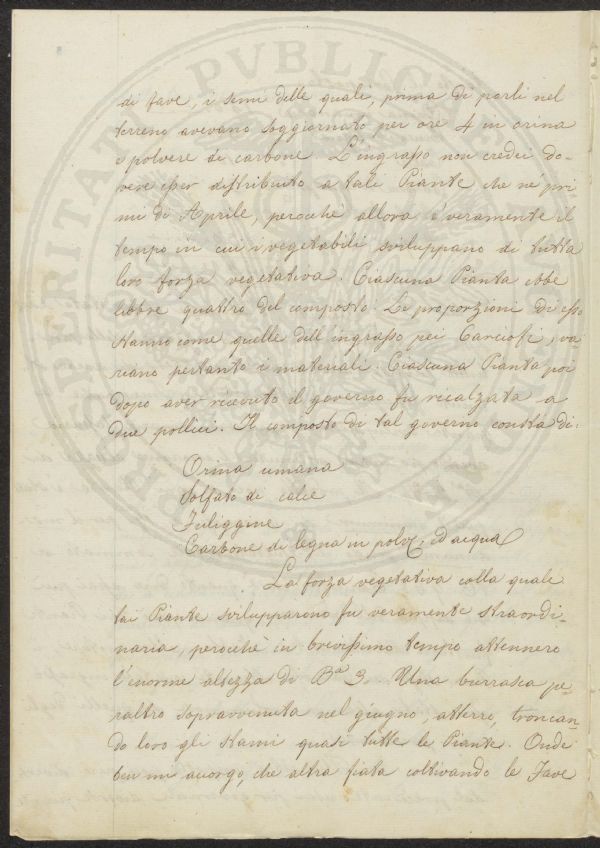 di fave, i semi delle quali, prima di porli nel
terreno avevano soggiornato per ore 4 in orina
e polvere di carbone. L'ingrasso non credei do-
vere esser distribuito a tali Piante che ne' pri
mi di Aprile, perocchè allora è veramente il
tempo in cui i vegetabili sviluppano di tutta
loro forza vegetativa. Ciascuna Pianta ebbe
libbre quattro del composto. Le proporzioni di esso
stanno come quelle dell'ingrasso pei Carciofi, va-
riano pertanto i materiali. Ciascuna Pianta poi
dopo aver ricevuto il governo fu ricalzata a
due pollici. Il composto di tal governo consta di:
Orina umana
Solfato di calce
Fuliggine
Carbone di legna in polv; ed acqua
La forza vegetativa colla quale
tai Piante svilupparono fu veramente straordi-
naria, perocchè in brevissimo tempo attennero
l'enorme altezza di Ba 3. Una burrasca pe-
raltro sopravvenuta nel giugno, atterrò, troncan-
do loro gli stami quasi tutte le Piante. Onde
ben mi accorgo, che altra fiata coltivando le Fave
PROSPERITATI PVBLICAE